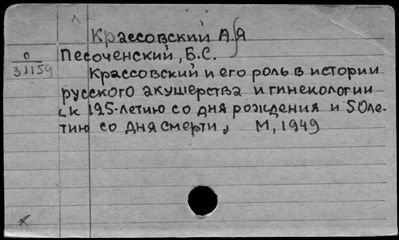 Крассовский А.Я
о
31159
Песоченский, Б.С.
Крассовский и его роль в истории
русского акушерства и гинекологии
(к 125-летию со дня рождения и 50ле-
тию со дня смерти, М, 1949